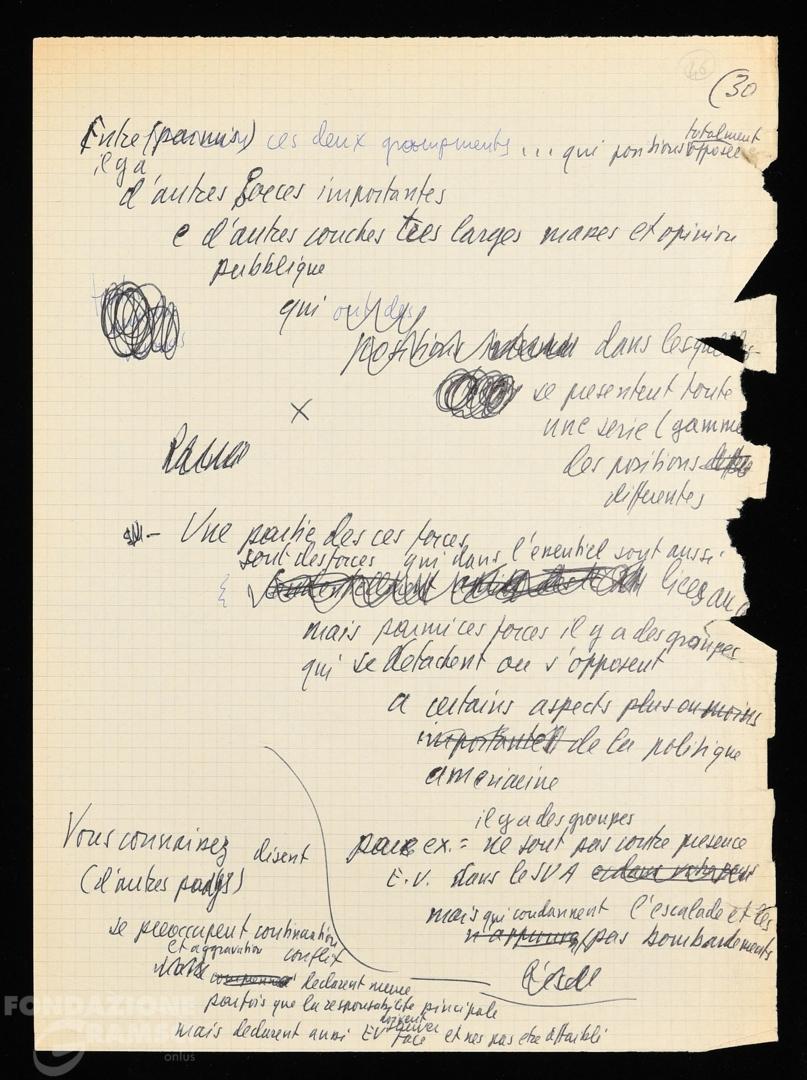 46
(30
Entre (parmis) ces deux groupments ... qui positions totalment opposée
il y a
d'autres forces importantes
e d'autres couches tres larges masses et opinion
pubblique
qui ont des
positions dans lesquelles
se presentent toute
une serie (gamme
des positions
differentes
Une partie des ces forces
sont des forces qui dans l'essentiel sont aussi
liees au
mais parmi ces forces il y a des groupes
qui se detachent ou s'opposent
a certains aspects plus ou moins
importantes de la politique
americaine
il y a des groupes
par ex. = ne sont pas contre presence
E.V. dans le SVA
mais qui condannent l'escalade et les
pas bombardements
Vous connaissez disent
(d'autres pays)
se preoccupent continuation
et aggravation conflit
declarent meme
parfois que la responsabilité principale
mais declarent aussi EV doivent sauver
face et nes pas etre affaibli
FONDAZIONE
GRAMSCI
onlus